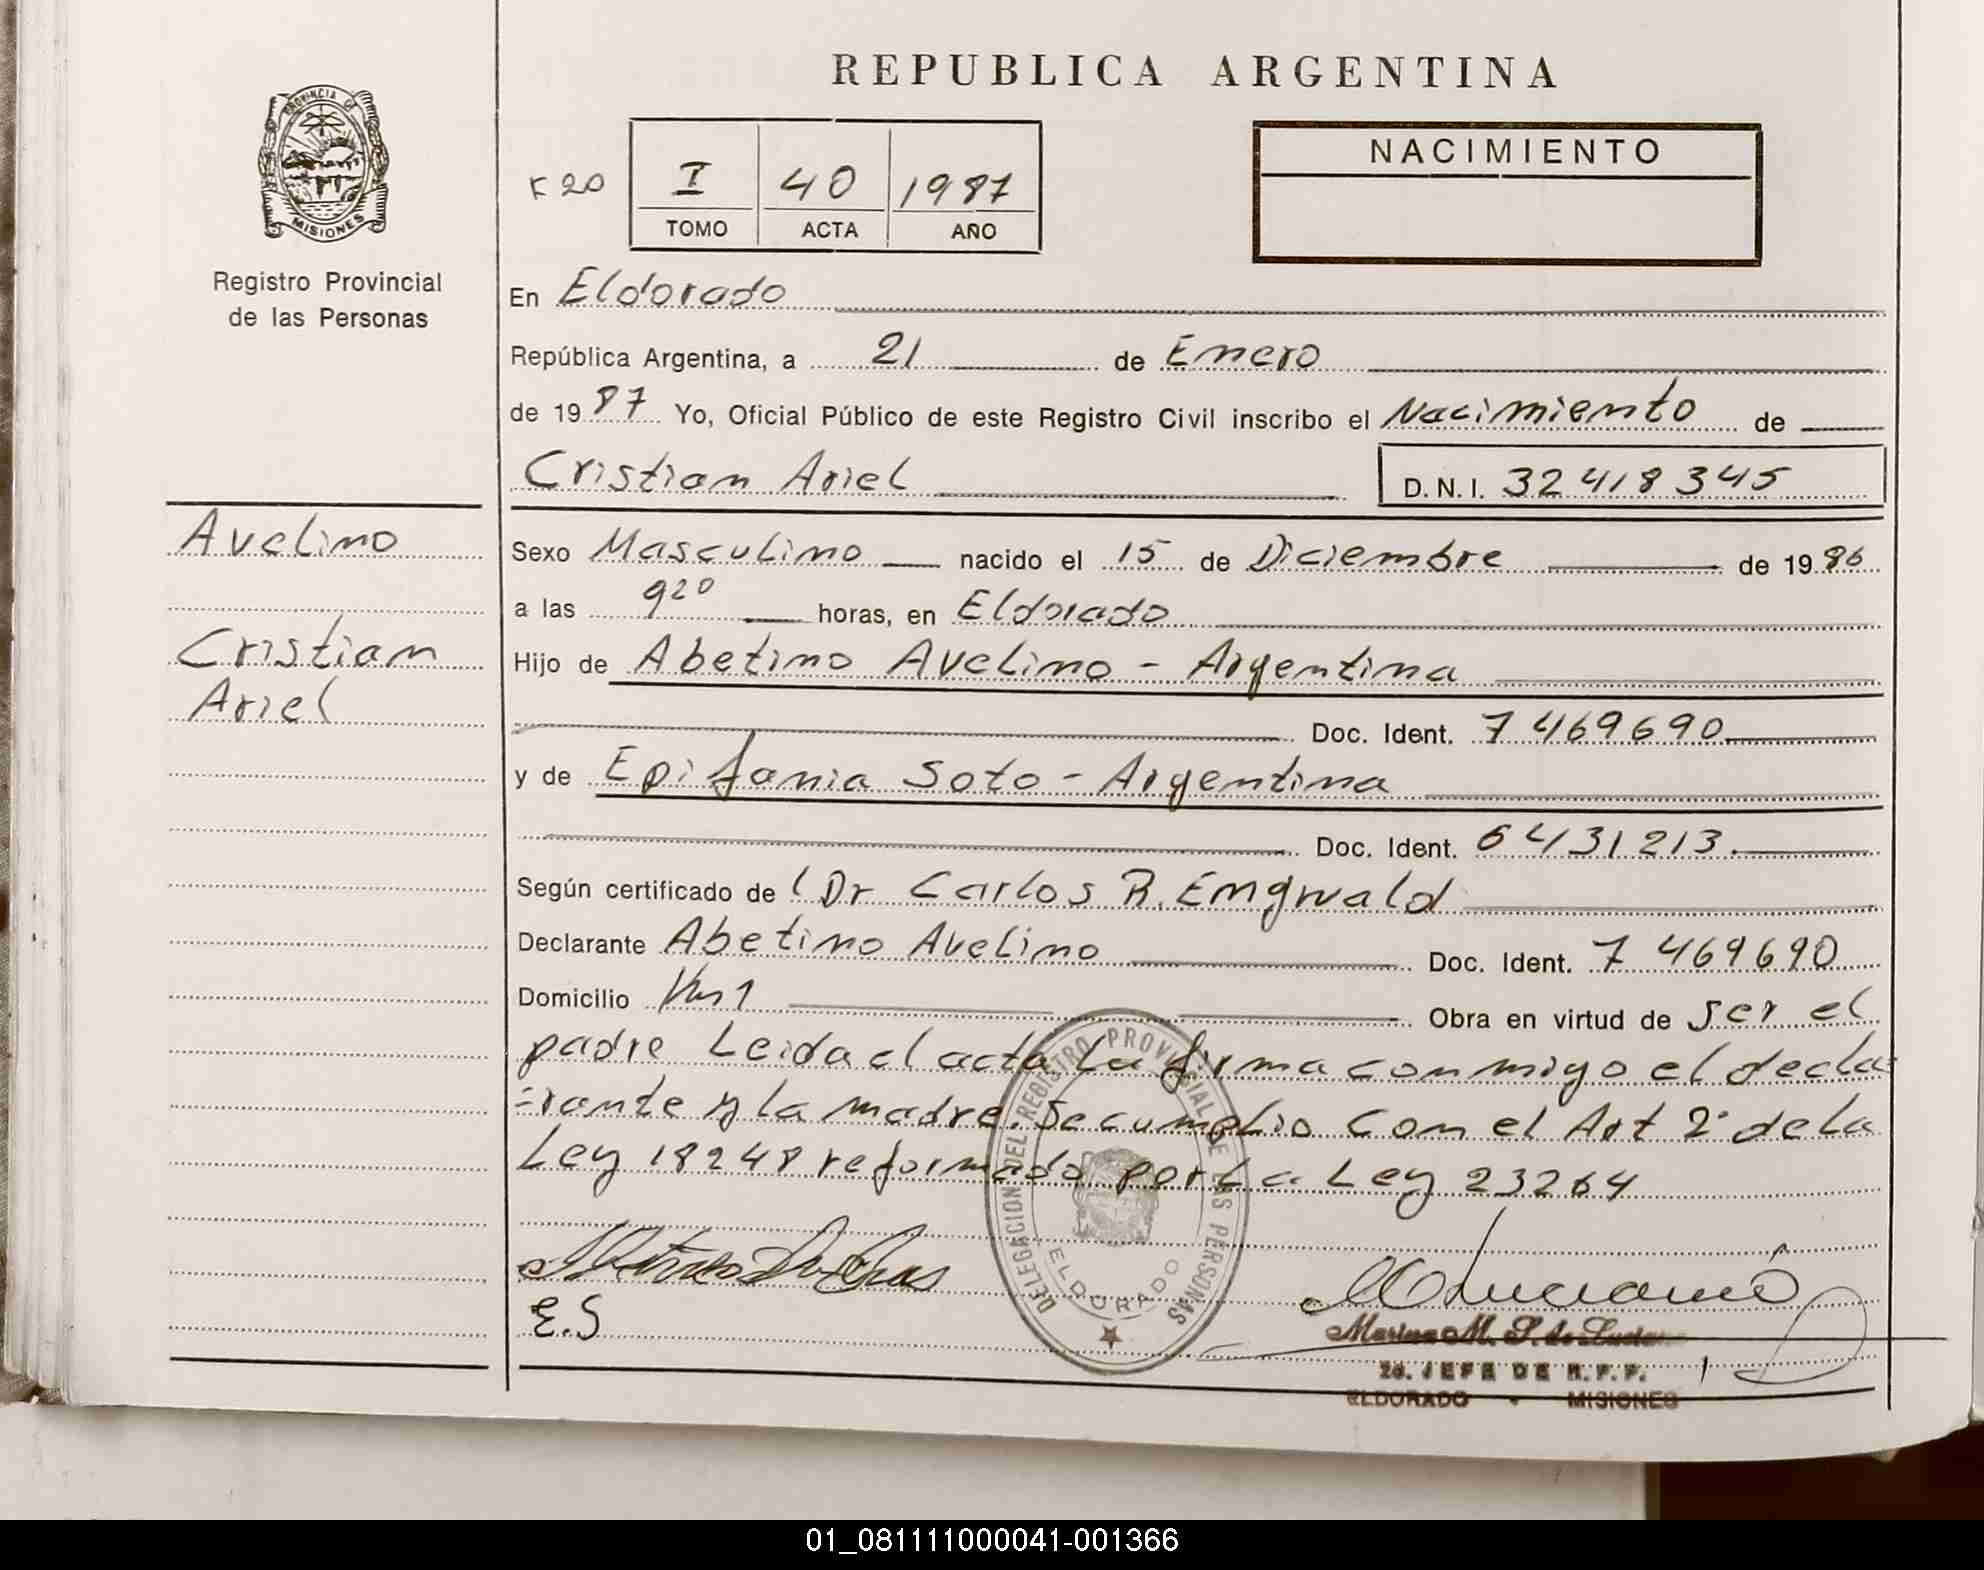 REPUBLICA ARGENTINA
PROVINCIA DE
MISIONES
Registro Provincial
de las Personas
F 20
I 40 1987
TOMO ACTA AÑO
NACIMIENTO
En Eldorado
República Argentina, a 21 de Enero
de 1987 Yo, Oficial Público de este Registro Civil inscribo el Nacimiento de
Cristian Ariel D.N.I. 32418345
Avelino
Cristian
Ariel
Sexo Masculino nacido el 15 de Diciembre de 1986
a las 920 horas, en Eldorado
Hijo de Abetino Avelino - Argentina
Doc. Ident. 7469690
y de Epifania Soto - Argentina
Doc. Ident. 6431213.
Según certificado de Dr Carlos R. Engwald
Declarante Abetino Avelino Doc. Ident. 7469690
Domicilio Km 1 Obra en virtud de ser el
padre Leida el acta la firma conmigo el decla
=rante y la madre. Se cumplio con el Art 2° de la
Ley 18248 reformado por la Ley 23264
DELEGACION DEL REGISTRO PROVINCIAL DE LAS PERSONAS
ELDORADO
E.S
Marina M. S. de Luciano
2o. JEFE DE R.P.P.
ELDORADO - MISIONES
01_081111000041-001366